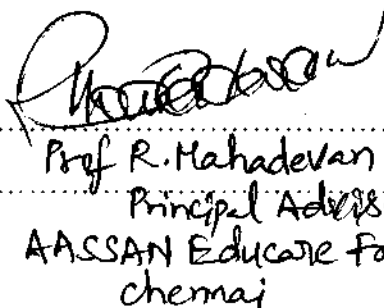 Prof R. Mahadevan
Principal Advis
AASSAN Educare Fo
Chennai